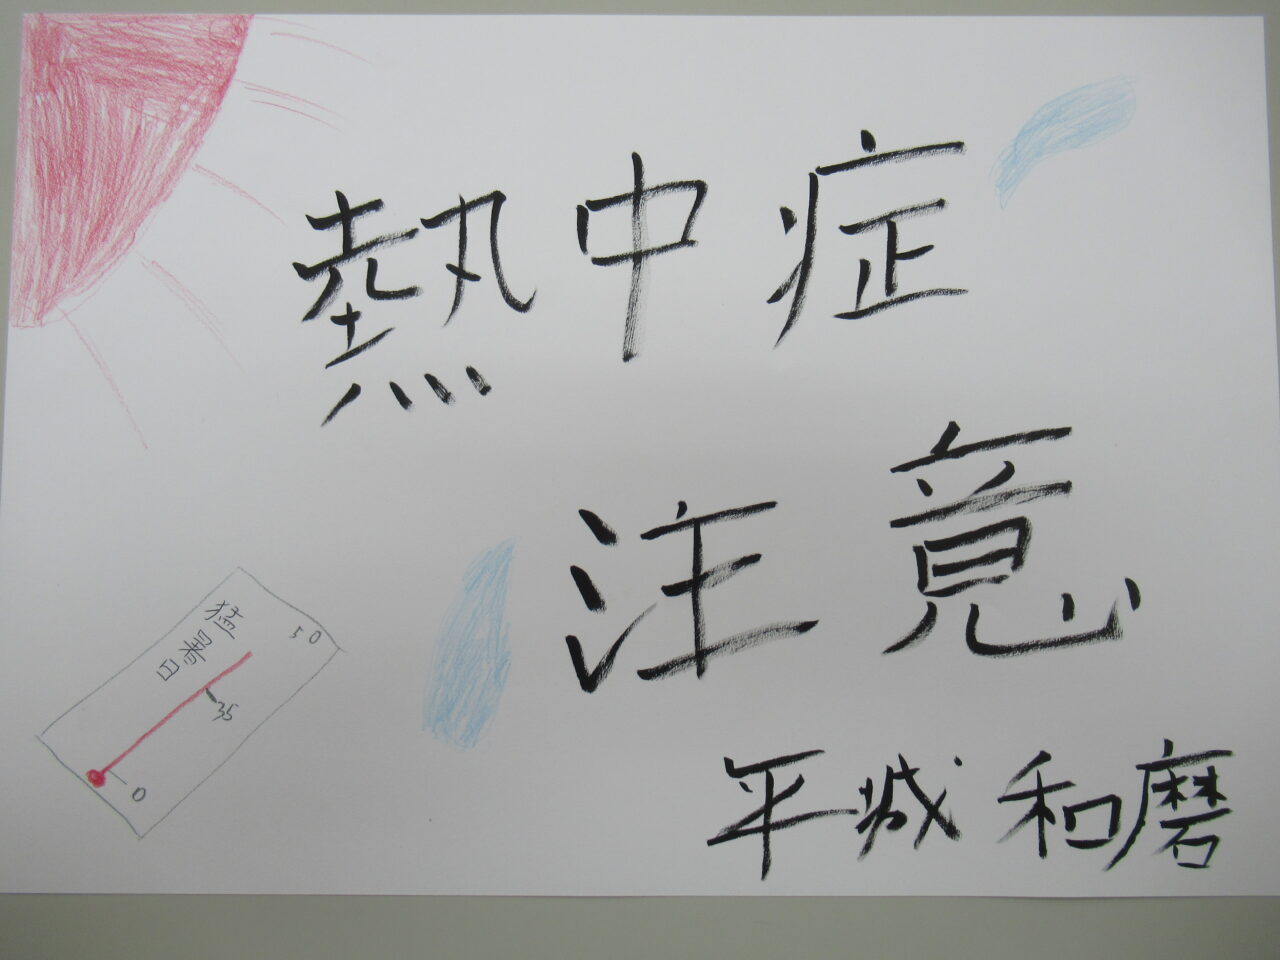 熱中症
注意
平城 和磨
猛暑日
50
35
0